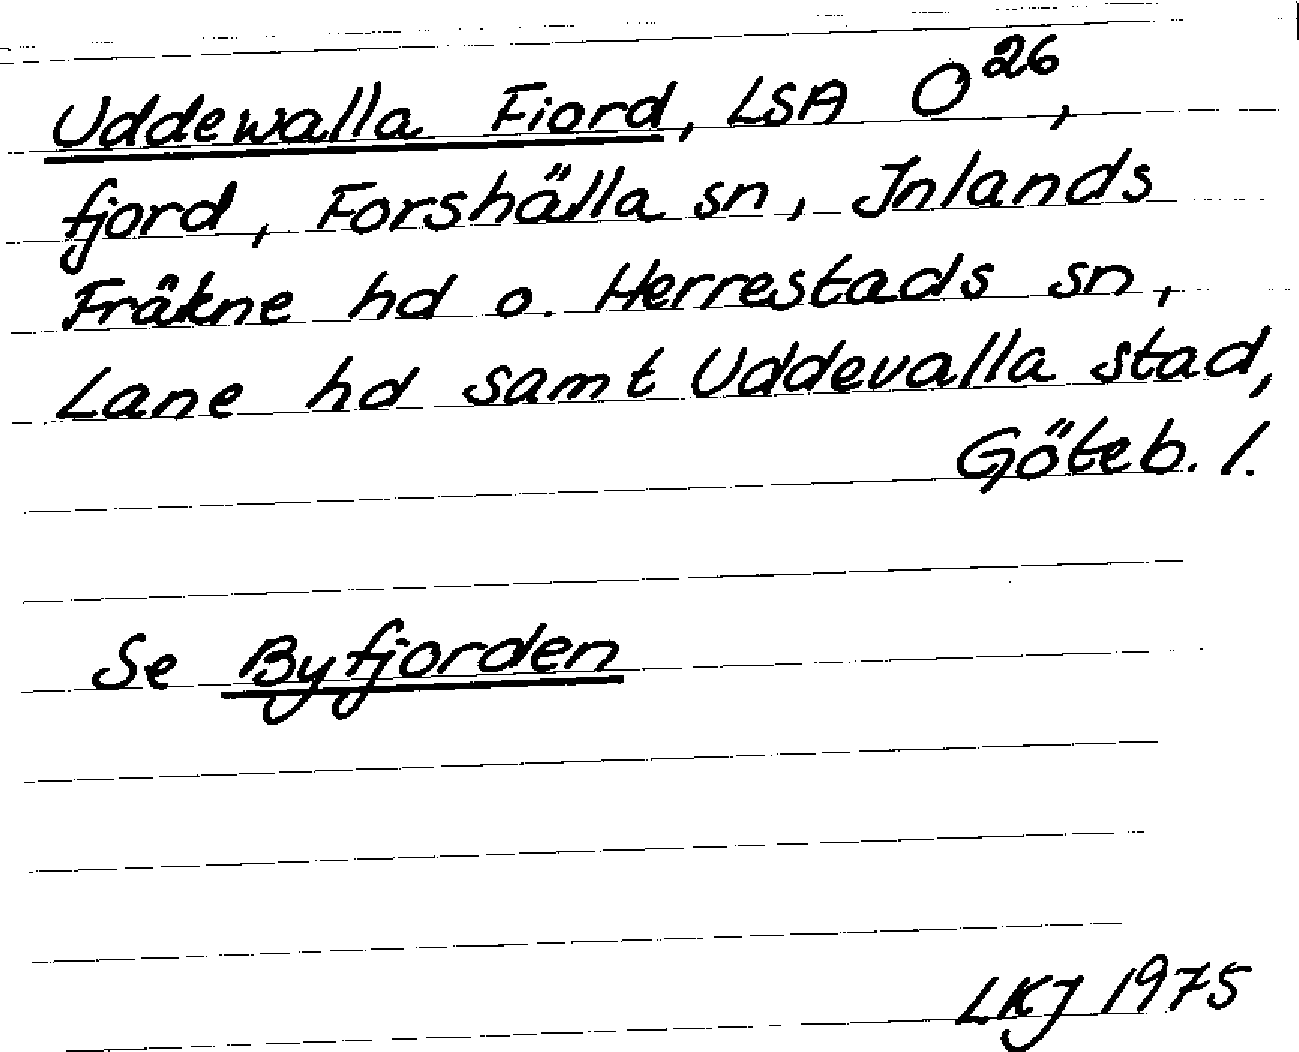 Uddewalla Fiord, LSA O²⁶,
fjord, Forshälla sn, Inlands
Fräkne hd o. Herrestads sn,
Lane hd samt Uddevalla stad,
Göteb. l.
Se Byfjorden
LKJ 1975